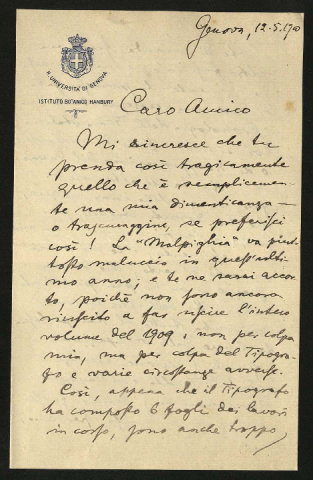 Genova, 12.5.1910
R. UNIVERSITÀ DI GENOVA
ISTITUTO BOTANICO HANBURY
Caro Amico
Mi rincresce che tu
prenda così tragicamente
quello che è semplicemen-
te una mia dimenticanza –
o trascuraggine, se preferisci
così! La "Malpighia" va piut-
tosto maluccio in quest'ulti-
mo anno; e te ne sarai accor-
to, poichè non sono ancora
riuscito a far uscire l'intero
volume del 1909, non per colpa
mia, ma per colpa del Tipogra-
fo e varie circostanze avverse.
Così, appena che il Tipografo
ha composto 6 fogli dei lavori
in corso, sono anche troppo